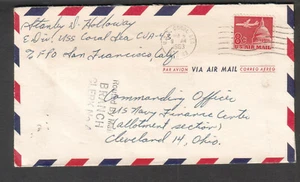 Stanley D. Holloway
E Div. USS Coral Sea CVA-43
% FPO San Francisco, Calif.
8¢
U.S. AIR MAIL
PAR AVION VIA AIR MAIL CORREO AEREO
BRANCH
Commanding Officer
US Navy Finance Center
(allotment section)
Cleveland 14, Ohio.